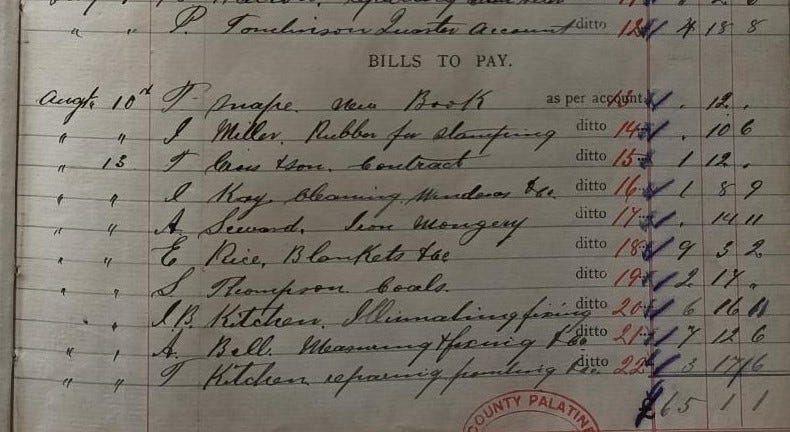 " " P. Tomlinson Quarter Account ditto 12 4 18 8
BILLS TO PAY.
Augt. 10 T Snape. new Book as per account 13 . 12 .
" " J Miller. Rubber for stamping ditto 14 . 10 6
" 13 T & son. Contract ditto 15 1 12 .
" " J Kay. Cleaning windows &c. ditto 16 1 8 9
" " A. Seward. Iron Mongery ditto 17 . 14 11
" " E Rice, Blankets &c ditto 18 9 3 2
" " S Thompson. Coals. ditto 19 2 17 "
" J.B. Kitchen. fixing ditto 20 6 16 11
" " A. Bell. Measuring & fixing &c ditto 21 7 12 6
" " T Kitchen &c ditto 22 3 17 6
£ 65 1 1
COUNTY PALATINE